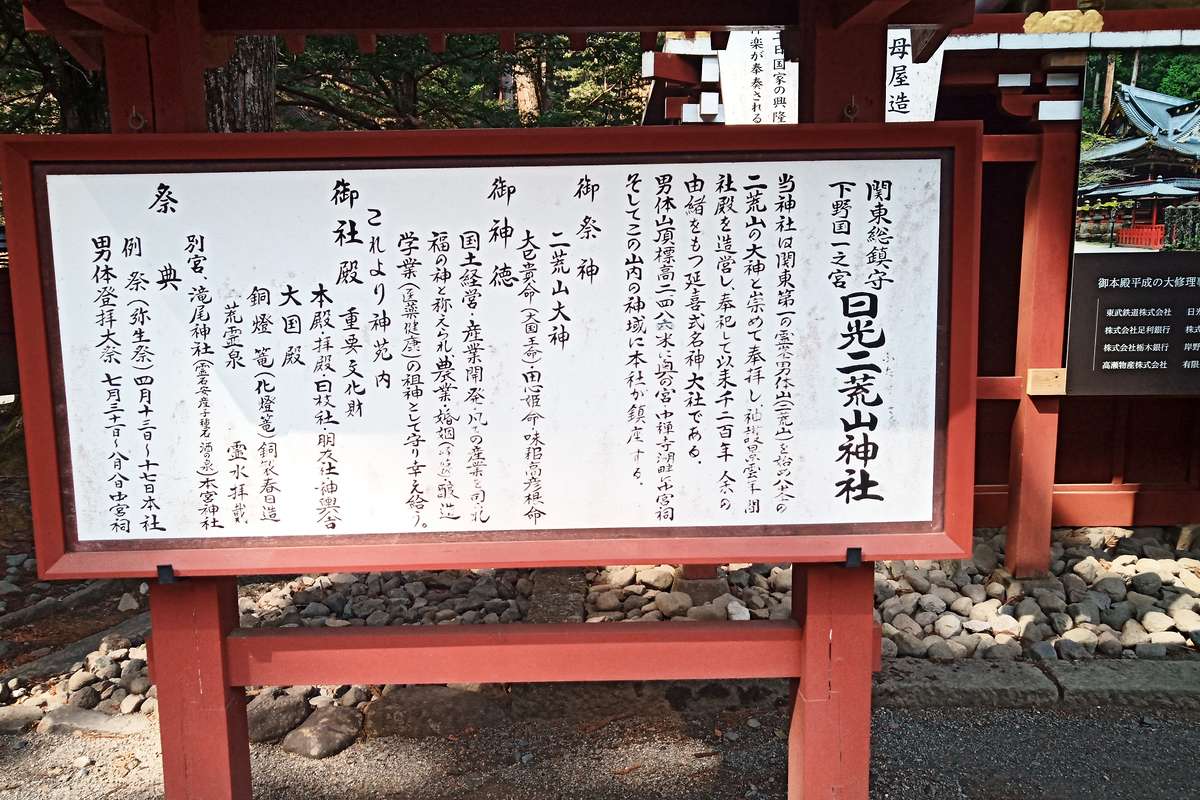 関東総鎮守
下野国一之宮
日光二荒山神社
ふたらさん
当神社は関東第一の霊峰男体山(二荒山)を始め八本の
二荒山の大神と崇めて奉拝し、神護景雲年間
社殿を造営し、奉祀して以来千二百年余の
由緒をもつ延喜式名神大社である。
男体山頂標高二四八六米に奥の宮・中禅寺湖畔に中宮祠
そしてこの山内の神域に本社が鎮座する。
御祭神
二荒山大神
大己貴命(大国主命)・田心姫命・味耜高彦根命
御神徳
国土経営・産業開発・凡ての産業を司られ
福の神と称えられ農業・婚姻
学業(医薬健康)の祖神として守り幸え給う。
これより神苑内
御社殿 重要文化財
本殿拝殿日枝社・朋友社・神輿舎
大国殿
銅燈篭(化燈篭)銅製春日造
荒霊泉 霊水拝戴
別宮、滝尾神社(霊石安産子種石 酒の泉)本宮神社
祭典
例祭(弥生祭)四月十三日~十七日本社
男体登拝大祭 七月三十一日~八月八日中宮祠
国家の興隆
楽が奉奏される
母屋造
御本殿平成の大修理
東武鉄道株式会社
株式会社足利銀行
株式会社栃木銀行
高瀬物産株式会社
日光
株式
岸野
有限